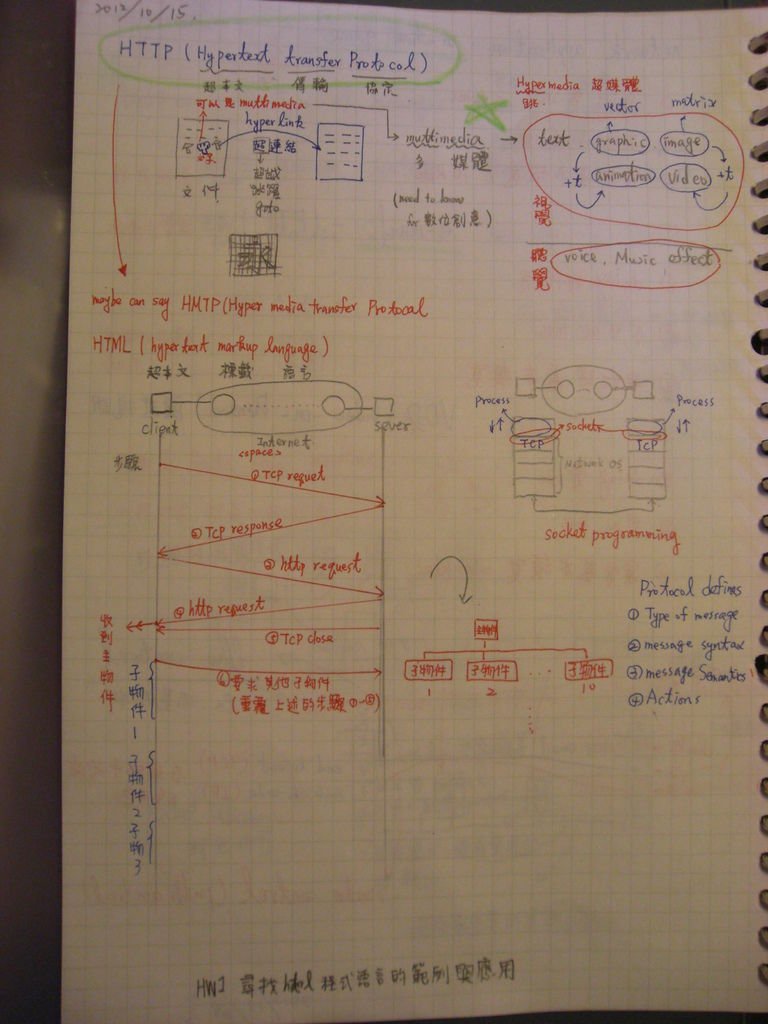 2012/10/15.
HTTP (Hypertext transfer Protocol)
超本文 傳輸 協定
可以是 multimedia
hyperlink
超連結
超越
跳躍
goto
文件
multimedia
多 媒體
(need to know
for 數位創意)
Hypermedia 超媒體
跳
vector matrix
text graphic image
+t animation video +t
視覺
聽覺
voice, Music effect
maybe can say HMTP (Hyper media transfer Protocal
HTML (hypertext markup language)
超本文 標籤 語言
client
Internet
sever
<space>
步驟
① TCP requet
② TCP response
③ http request
④ http request
⑤ TCP close
收到主物件
⑥ 要求其他子物件
(重覆上述的步驟①~⑤)
子物件1
子物件2
子物3
Process Process
↓↑ socket ↓↑
TCP TCP
Network OS
socket programming
主物件
子物件 子物件 ... 子物件
1 2 10
Protocol defines
① Type of message
② message syntax
③ message Semantics
④ Actions
HW1 尋找 html 程式語言的範例與應用